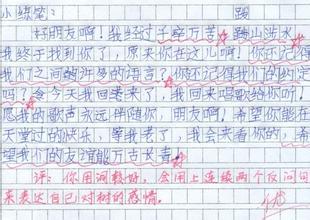 小练笔: 踢
好朋友啊!我经过千辛万苦,踏山涉水,
我终于找到你了,原来你在这儿啊!你还记得
我们之间的许多的语言?你还记得我们的约定
吗?今天我回老来了,我回来唱歌给你听!
愿我的歌声永远伴随你,朋友啊!希望你能在
天堂过的快乐,等我老了,我会来看你的,希
望我们的友谊能万古长青!
评:你用词较好,会用上连续两个反问句
来表达自己对树的感情。 优